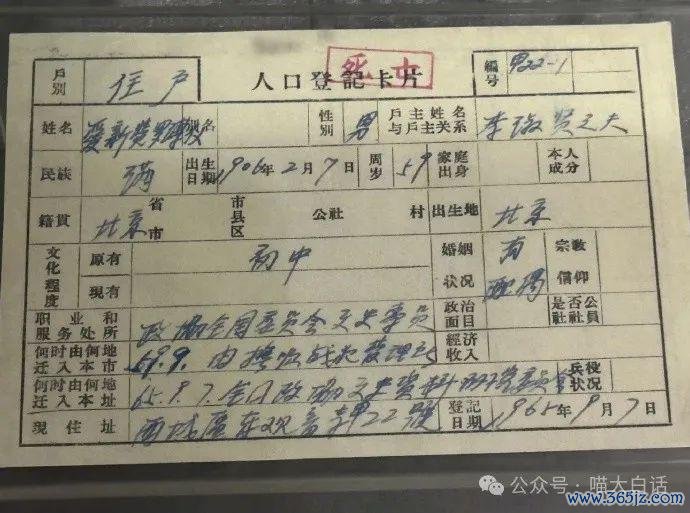 人口登記卡片
戶別 住户
編号 甲22-1
姓名 愛新覺羅溥儀 別名 性別 男 戶主姓名与戶主关系 李淑贤之夫
民族 满 出生日期 1906年2月7日 周岁 59 家庭出身 本人成分
籍貫 北京 省市 市县区 公社 村 出生地 北京
文化程度 原有 初中 婚姻状况 有配偶 宗教信仰
現有
职业和服务处所 政协全国委员会文史专员 政治面目 是否公社社員
何时由何地迁入本市 59.9. 由抚顺战犯管理所 經济收入
何时由何地迁入本址 65.8.7. 全国政协文史资料研究委员会 兵役状况
現住址 西城區东观音寺22號 登記日期 1965年9月7日
公众号·喵大白话
www.365jz.com